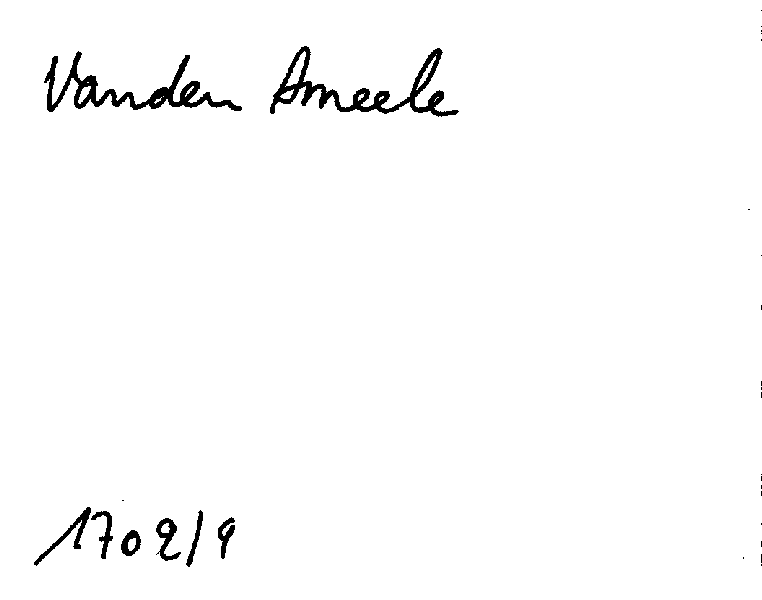 Vanden Ameele
1702/9